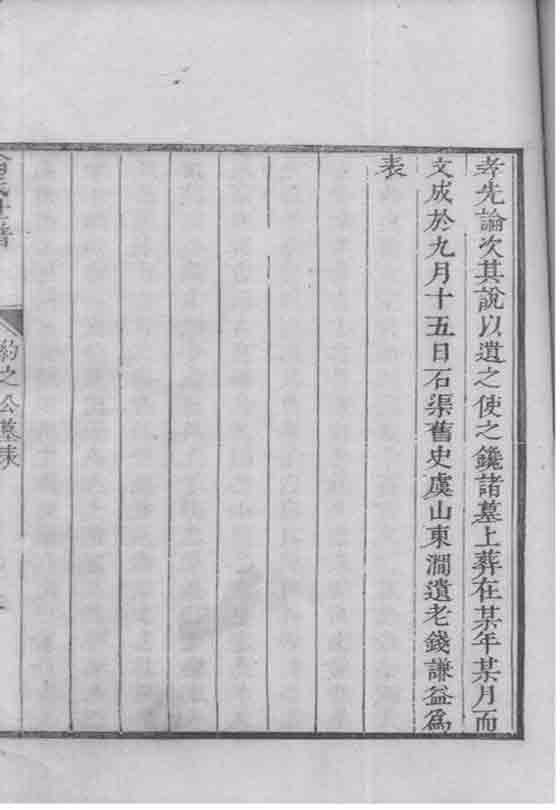 孝先論次其說以遺之使之鑱諸墓上葬在某年某月而
文成於九月十五日石渠舊史虞山東澗遺老錢謙益爲
表
氏世譜
約之公墓表